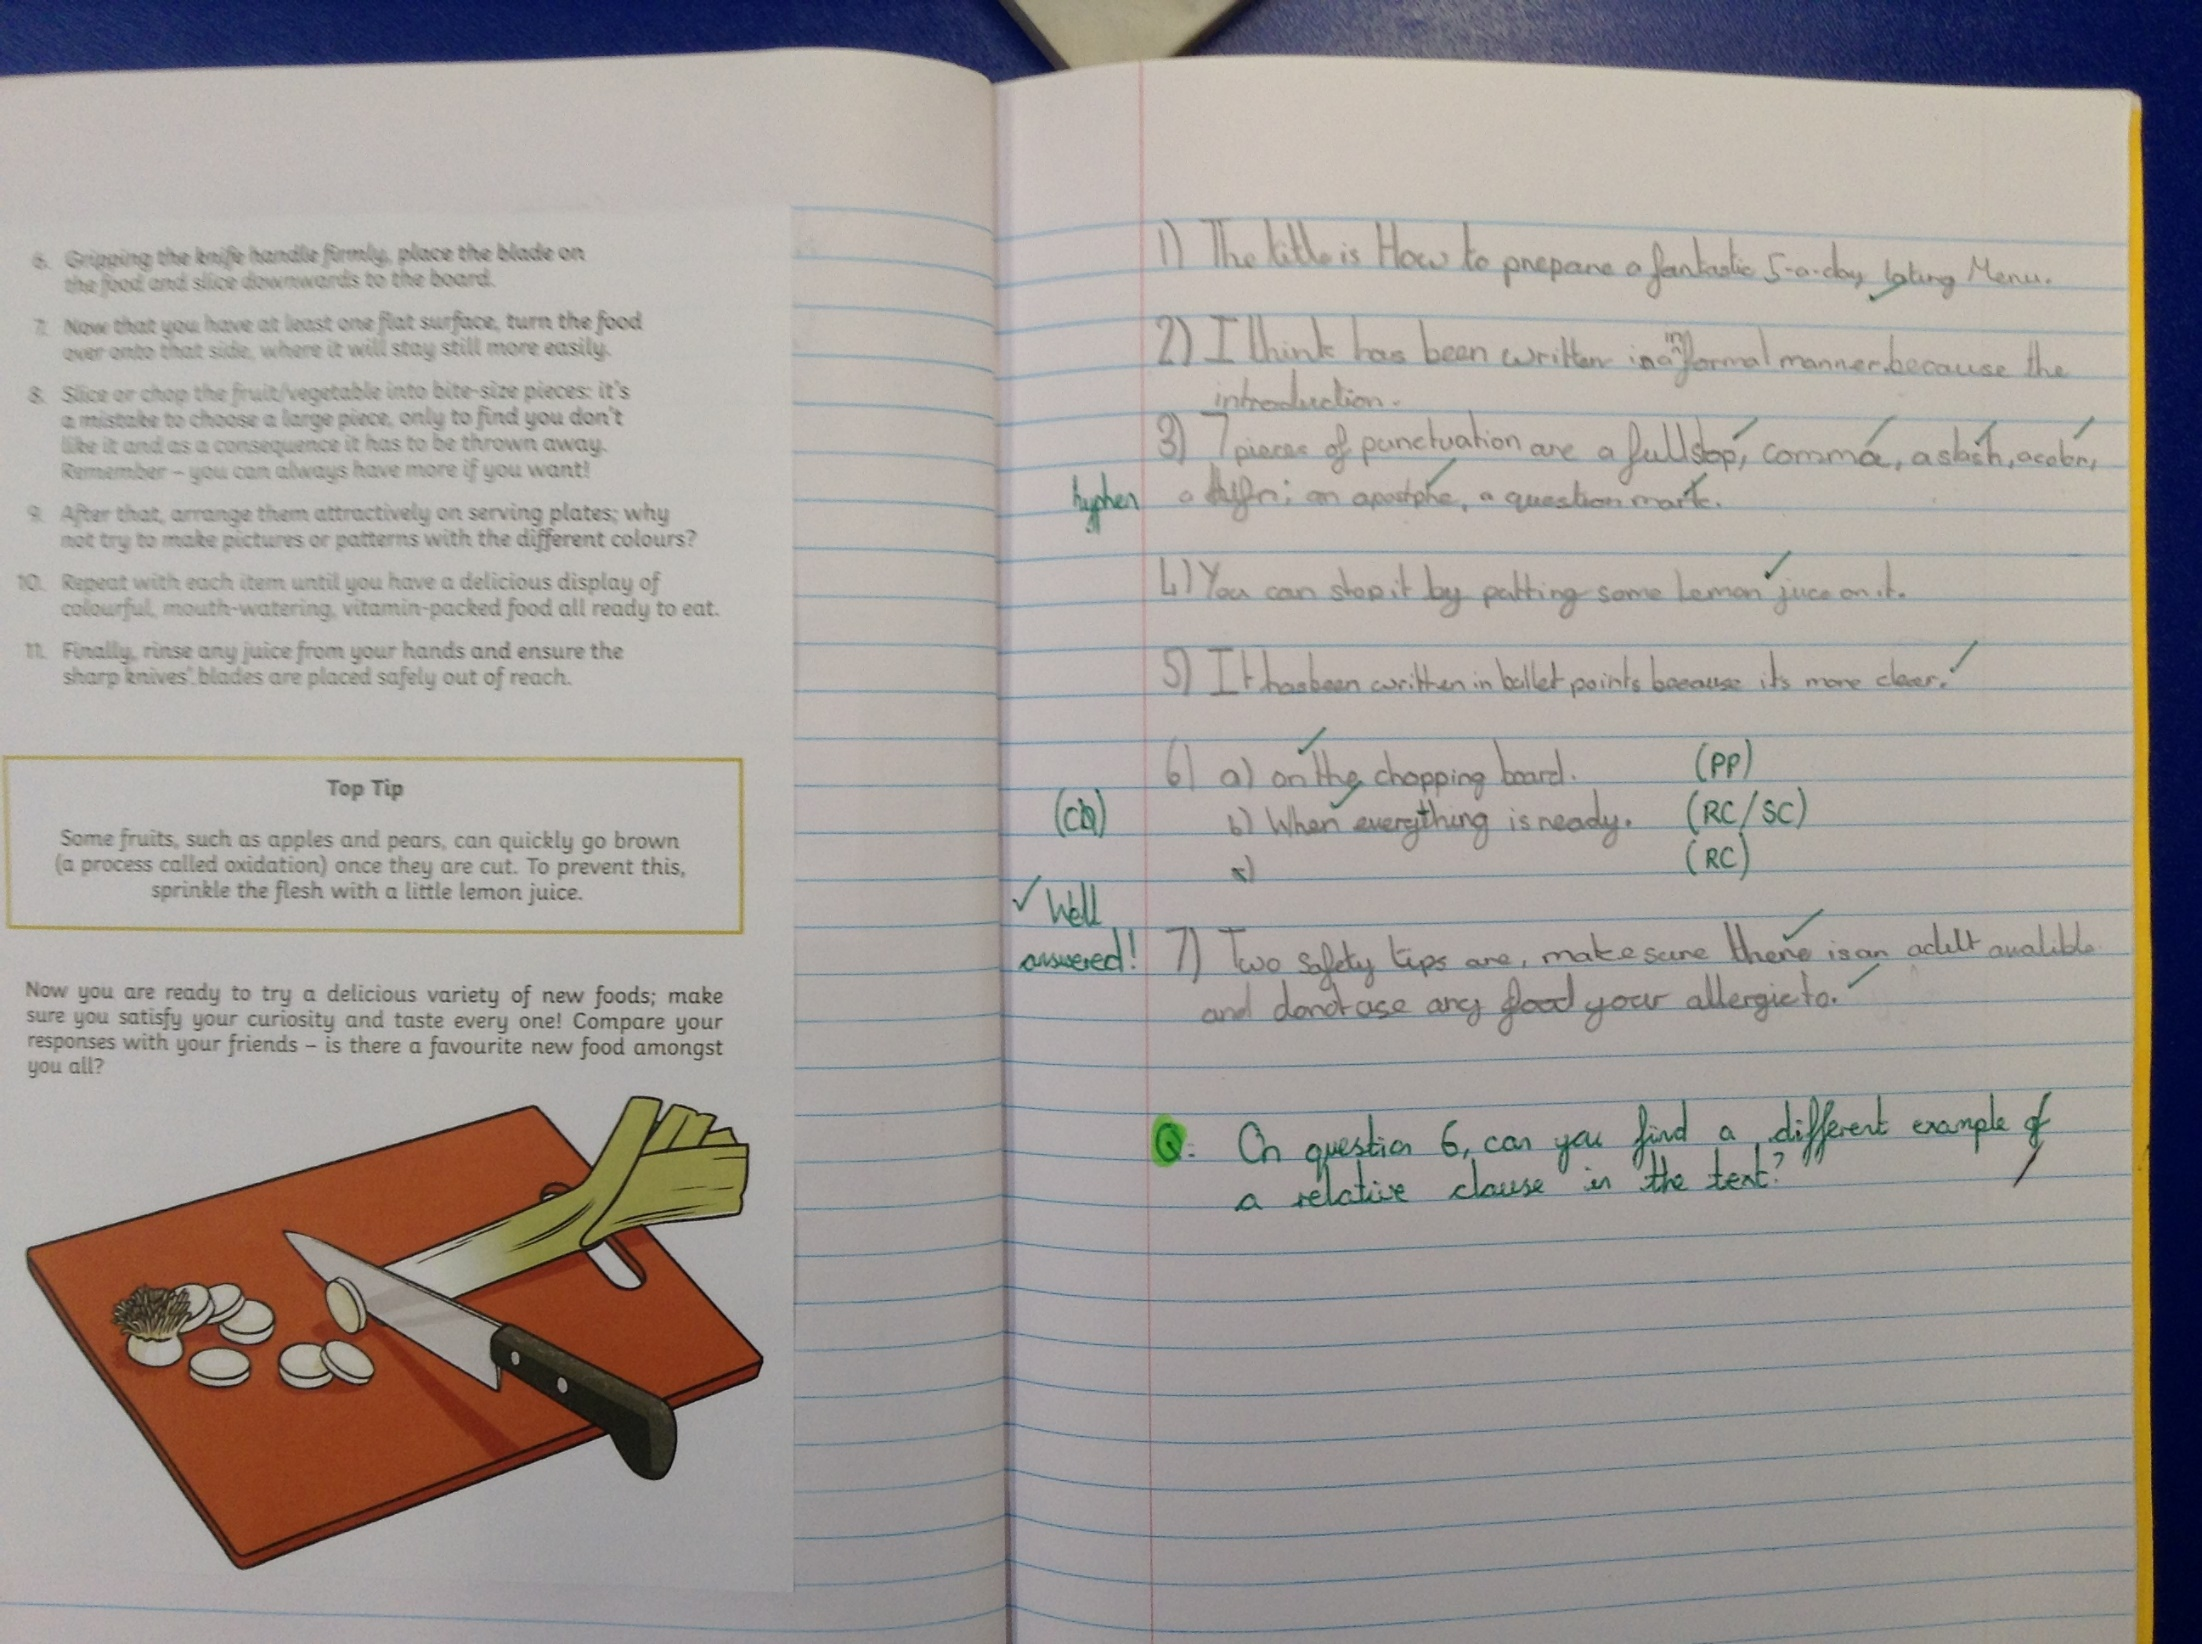 6. Gripping the knife handle firmly, place the blade on
the food and slice downwards to the board.
7. Now that you have at least one flat surface, turn the food
over onto that side, where it will stay still more easily.
8. Slice or chop the fruit/vegetable into bite-size pieces: it's
a mistake to choose a large piece, only to find you don't
like it and as a consequence it has to be thrown away.
Remember – you can always have more if you want!
9. After that, arrange them attractively on serving plates; why
not try to make pictures or patterns with the different colours?
10. Repeat with each item until you have a delicious display of
colourful, mouth-watering, vitamin-packed food all ready to eat.
11. Finally, rinse any juice from your hands and ensure the
sharp knives' blades are placed safely out of reach.
Top Tip
Some fruits, such as apples and pears, can quickly go brown
(a process called oxidation) once they are cut. To prevent this,
sprinkle the flesh with a little lemon juice.
Now you are ready to try a delicious variety of new foods; make
sure you satisfy your curiosity and taste every one! Compare your
responses with your friends – is there a favourite new food amongst
you all?
1) The title is How to prepare a fantastic 5-a-day Menu.
2) I think has been written in a informal manner because the
introduction.
3) 7 pieces of punctuation are a full stop, comma, a slash, a colon,
hyphen
a an apostphe, a question mark.
4) You can stop it by putting some lemon juce on it.
5) It has been written in bullet points because its more clear.
6) a) on the chopping board. (PP)
b) When everything is ready. (RC/SC)
(RC)
✓ Well
answered!
7) Two safety tips are, make sure there is an adult avalible
and dont use any food your allergic to.
Q: On question 6, can you find a different example of
a relative clause in the text?